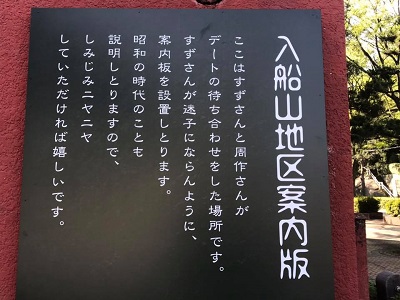 入船山地区案内版
ここはすずさんと周作さんが
デートの待ち合わせをした場所です。
すずさんが迷子にならんように、
案内板を設置しとります。
昭和の時代のことも
説明しとりますので、
しみじみニヤニヤ
していただければ嬉しいです。